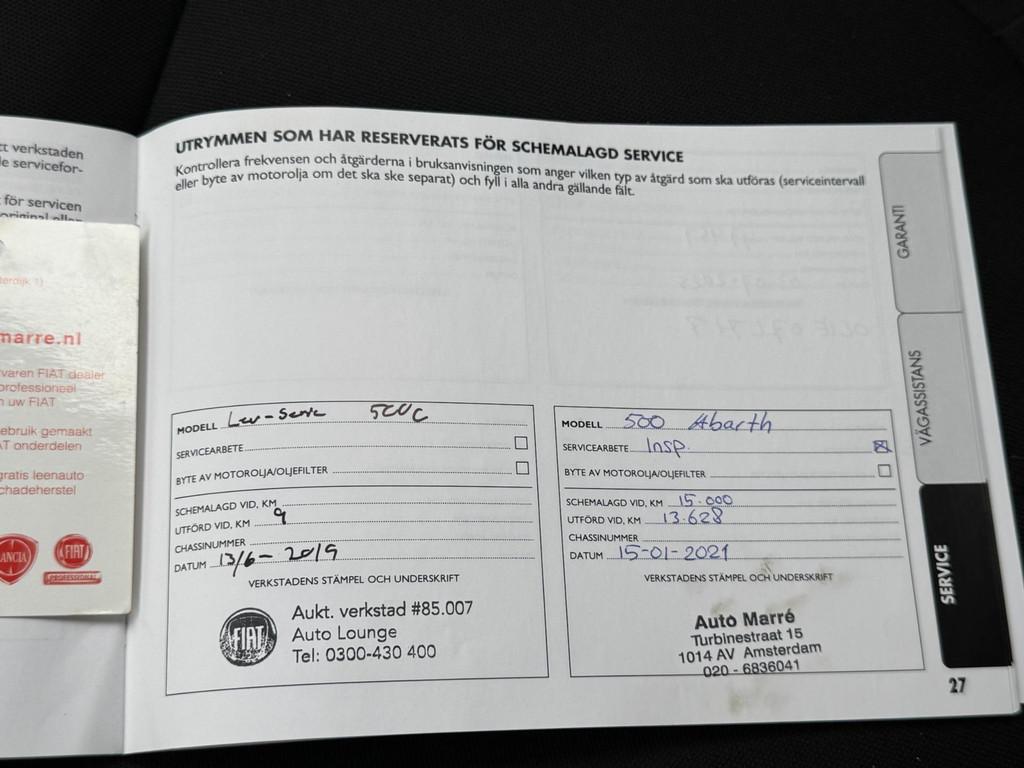 tt verkstaden
le servicefor-
för servicen
original eller
terdijk 1)
marre.nl
varen FIAT dealer
professioneel
n uw FIAT
ebruik gemaakt
AT onderdelen
gratis leenauto
chadeherstel
LANCIA
FIAT
PROFESSIONAL
UTRYMMEN SOM HAR RESERVERATS FÖR SCHEMALAGD SERVICE
Kontrollera frekvensen och åtgärderna i bruksanvisningen som anger vilken typ av åtgärd som ska utföras (serviceintervall
eller byte av motorolja om det ska ske separat) och fyll i alla andra gällande fält.
MODELL Lev-Serv 500C
SERVICEARBETE
BYTE AV MOTOROLJA/OLJEFILTER
SCHEMALAGD VID, KM
UTFÖRD VID, KM 9
CHASSINUMMER
DATUM 13/6-2019
VERKSTADENS STÄMPEL OCH UNDERSKRIFT
FIAT
Aukt. verkstad #85.007
Auto Lounge
Tel: 0300-430 400
MODELL 500 Abarth
SERVICEARBETE Insp.
BYTE AV MOTOROLJA/OLJEFILTER
SCHEMALAGD VID, KM 15.000
UTFÖRD VID, KM 13.628
CHASSINUMMER
DATUM 15-01-2021
VERKSTADENS STÄMPEL OCH UNDERSKRIFT
Auto Marré
Turbinestraat 15
1014 AV Amsterdam
020 - 6836041
GARANTI
VÄGASSISTANS
SERVICE
27